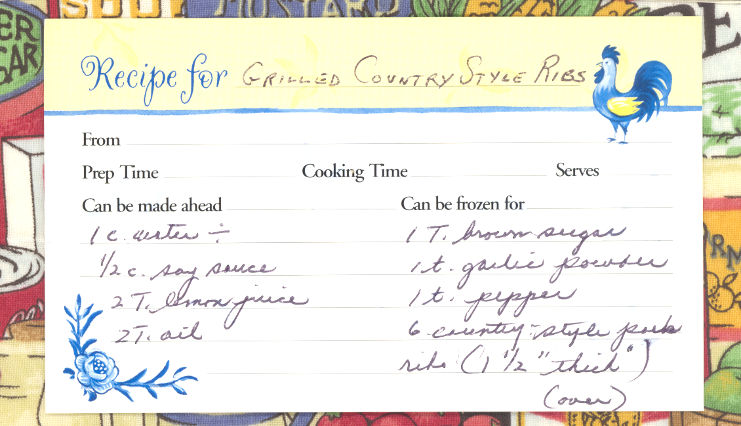 SOUP
MUSTARD
ER
GAR
Recipe for GRILLED COUNTRY STYLE RIBS
From
Prep Time Cooking Time Serves
Can be made ahead Can be frozen for
1 c. water ÷
1/2 c. soy sauce
2 T. lemon juice
2 T. oil
1 T. brown sugar
1 t. garlic powder
1 t. pepper
6 country-style pork
ribs (1 1/2" thick)
(over)